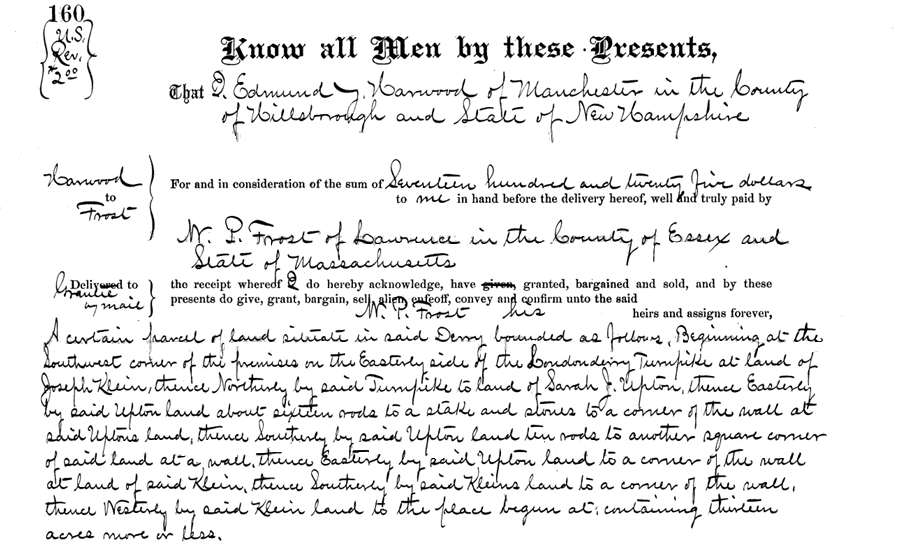 160
U.S.
Rev.
$2.00
Know all Men by these Presents,
That I, Edmund J. Harwood of Manchester in the County
of Hillsborough and State of New Hampshire
Harwood
to
Frost
For and in consideration of the sum of Seventeen hundred and twenty five dollars
to me in hand before the delivery hereof, well and truly paid by
W. P. Frost of Lawrence in the County of Essex and
State of Massachusetts
Delivered to
Grantee
by mail
the receipt whereof I do hereby acknowledge, have given, granted, bargained and sold, and by these
presents do give, grant, bargain, sell, alien, enfeoff, convey and confirm unto the said
W. P. Frost his heirs and assigns forever,
A certain parcel of land situate in said Derry bounded as follows, Beginning at the
Southwest corner of the premises on the Easterly side of the Londonderry Turnpike at land of
Joseph Klein, thence Northerly by said Turnpike to land of Sarah J. Upton, thence Easterly
by said Upton land about sixteen rods to a stake and stones to a corner of the wall at
said Uptons land, thence Southerly by said Upton land ten rods to another square corner
of said land at a wall, thence Easterly by said Upton land to a corner of the wall
at land of said Klein, thence Southerly by said Kleins land to a corner of the wall,
thence Westerly by said Klein land to the place begun at: containing thirteen
acres more or less.